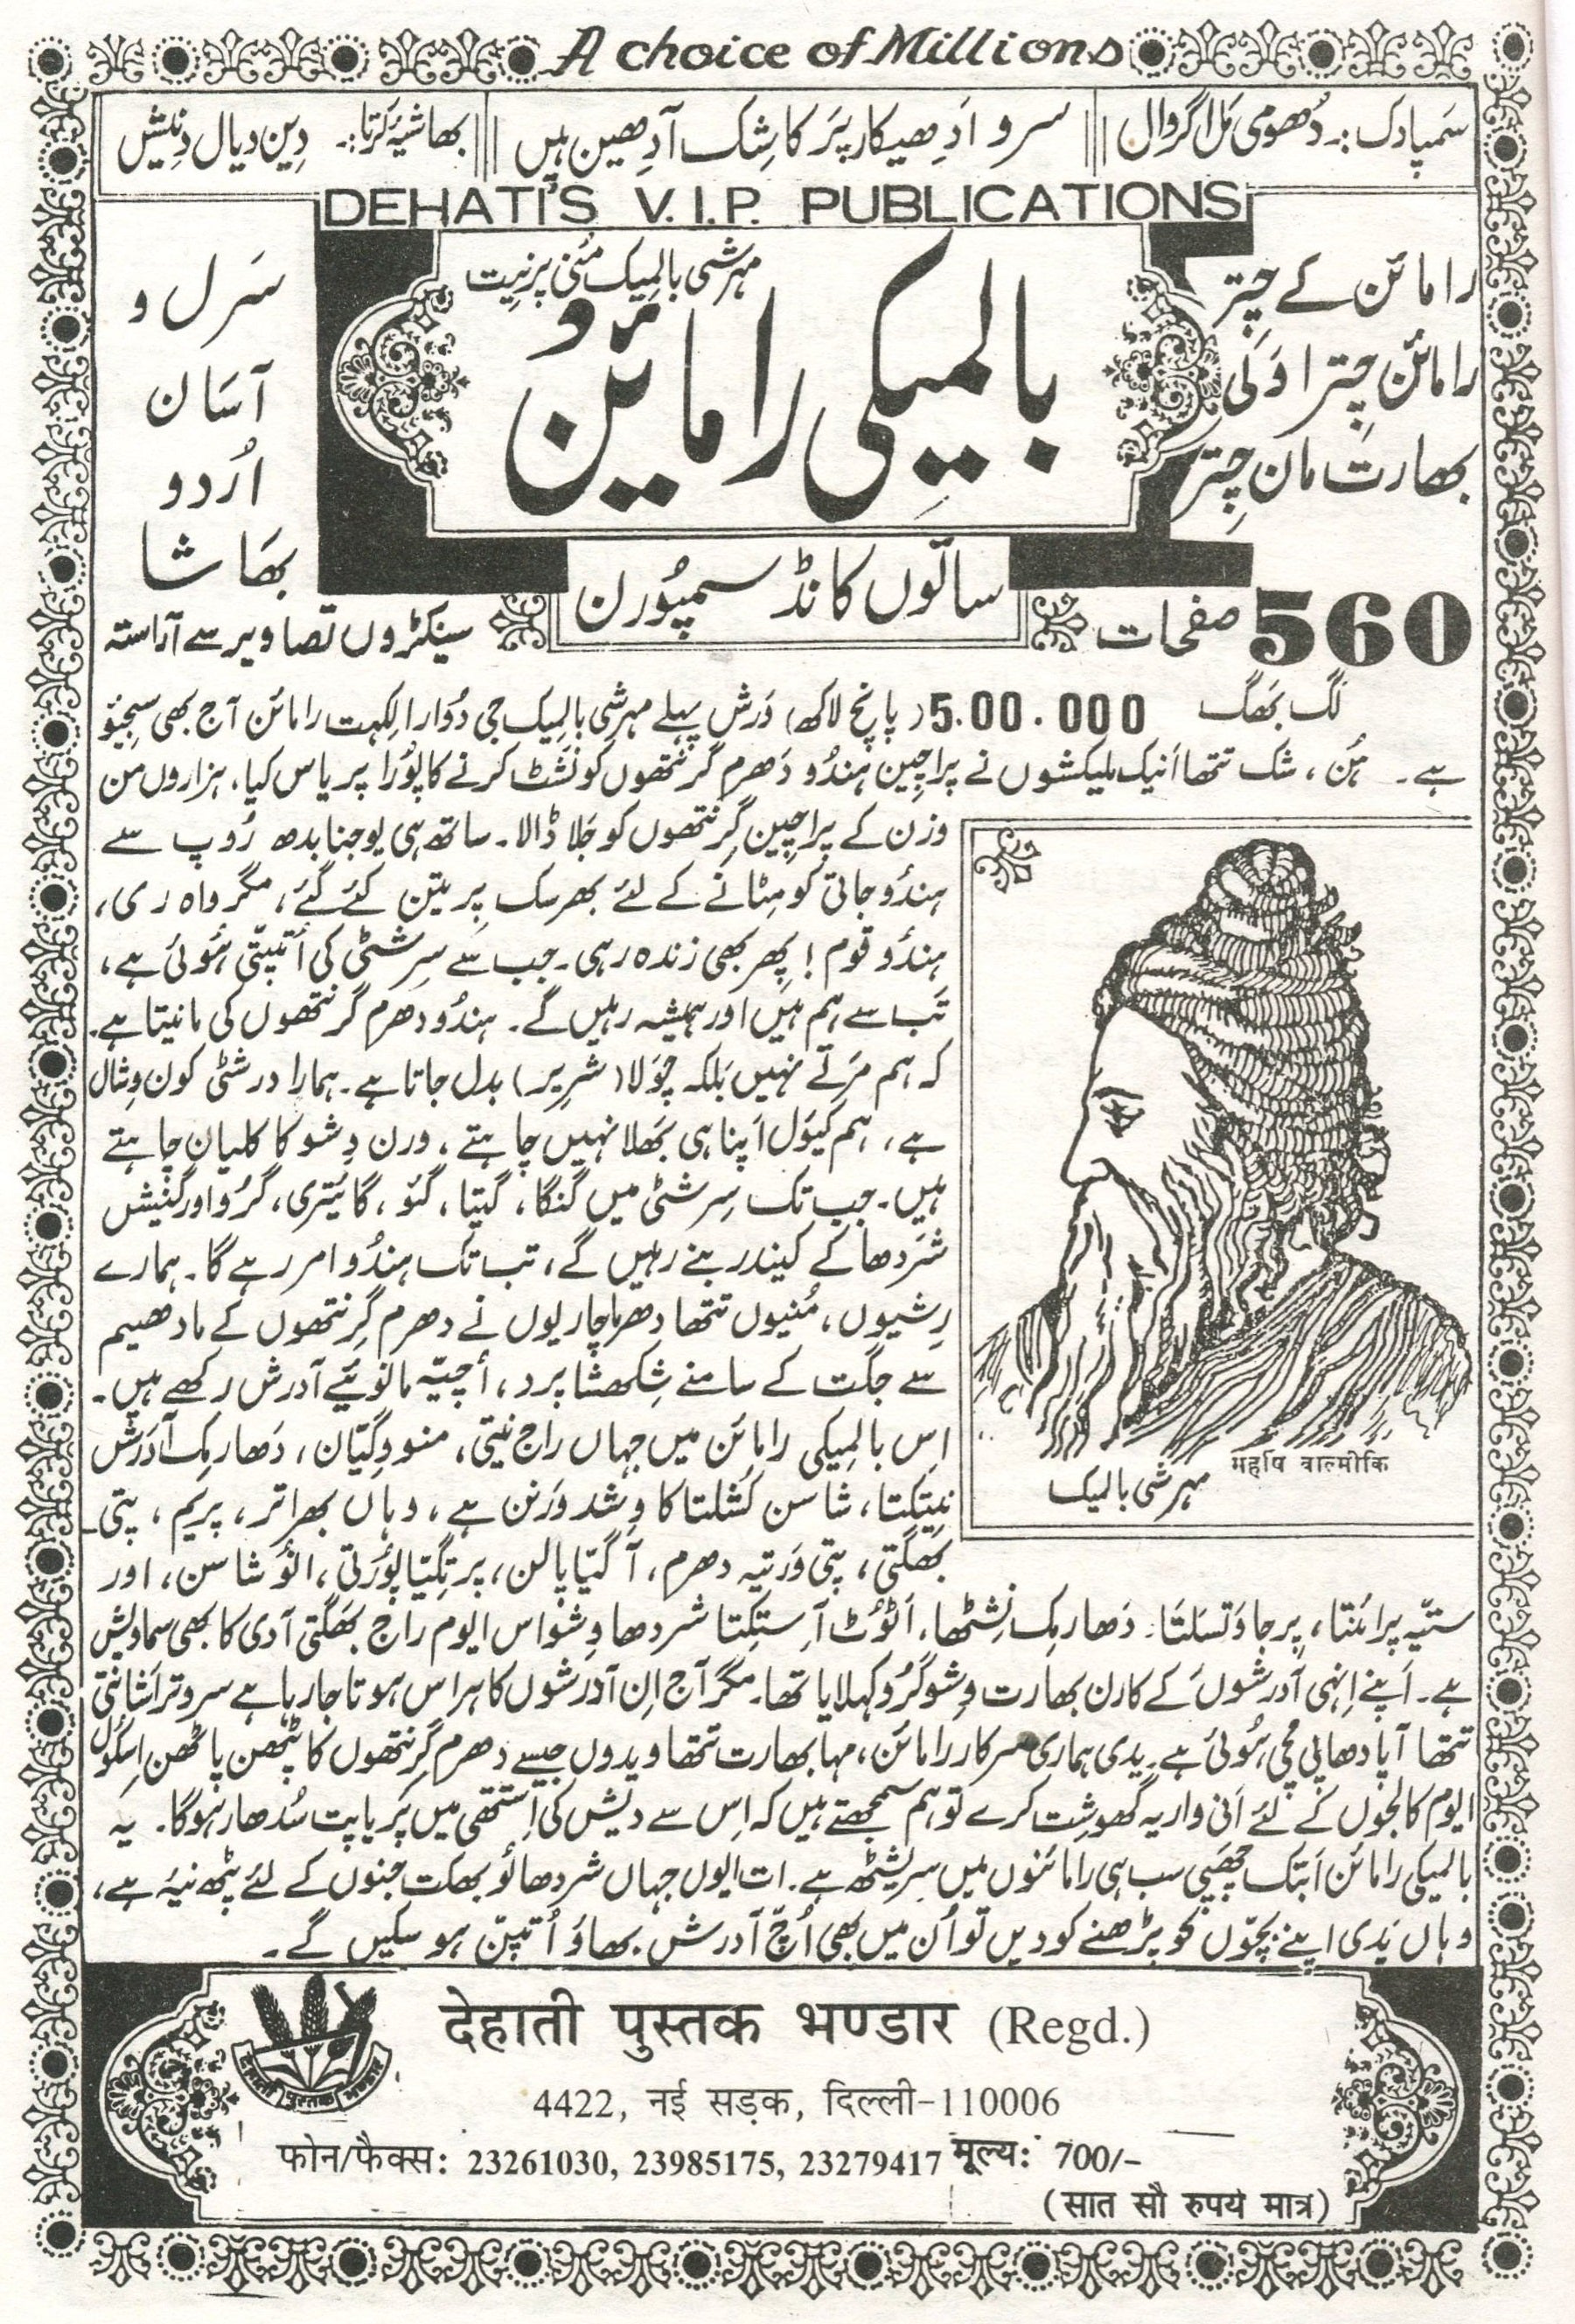 A choice of Millions
سَمپادک:۔ دُھومی مَل اگروال || سرو اَدِھیکار پَرکاشِک آدِھین ہیں || بھاشیہ کَرتا:۔ دِین دیال دِنیش
DEHATI'S V.I.P. PUBLICATIONS
مہرشی بالمیک مُنی پرنیت
بالمیکی رامائن
رامائن کے چِتر
رامائن چِتراوَلی
بھارت مان چِتر
سَرل و
آسَان
اُردو
بھَاشا
ساتوں کانڈ سمپُورن
560 صفحات
سینکڑوں تصاویر سے آراستہ
لگ بھَگ 5.00.000 (پانچ لاکھ) وَرش پہلے مہرشی بالمیک جی دُوارا لکہت رامائن آج بھی سجیَو
ہے۔ ہُن، شک تتھا اَنیک ملیکشوں نے پراچین ہندُو دَھرم گرنتھوں کو نَشٹ کرنے کا پُورا پریاس کیا، ہزاروں من
وزن کے پراچین گرنتھوں کو جَلا ڈالا۔ ساتھ ہی یوجنا بدھ رُوپ سے
ہندُو جاتی کو مِٹانے کے لئے بھرسک پریتن کئے گئے، مگر واہ ری،
ہندُو قوم! پھر بھی زندہ رہی۔ جب سے سِرشٹی کی اُتپتّی ہُوئی ہے،
تَب سے ہم ہیں اور ہمیشہ رہیں گے۔ ہندُو دھرم گرنتھوں کی مانیتا ہے۔
کہ ہم مَرتے نہیں بَلکہ چَولا (شریر) بدل جاتا ہے۔ ہمارا درشٹی کون وِشال
ہے، ہم کیَول اَپنا ہی بَھلا نہیں چاہتے، ورن وِشو کا کلیان چاہتے
ہیں۔ جب تک سِرشٹی میں گنگا، گیتا، گئو، گائیتری، گرُو اور گنیش
شَردھا کے کیندر بنے رہیں گے، تب تک ہندُو امر رہے گا۔ ہمارے
رِشیوں، مُنیوں تتھا دھرماچاریوں نے دھرم گرنتھوں کے مادھیم
سے جگت کے سامنے شِکھشا پرد، اُچیہّ مانوئیے آدرش رکھے ہیں۔
اِس بالمیکی رامائن میں جہاں راج نیتی، منووِگیان، دَھارمِک آدَرش
نیتِکتا، شاسن کُشلتا کا وِشد وَرنن ہے، وہاں بھراتر، پریم، پتی۔
بھَگتی، پتی وَرتیہ دھرم، آگیّا پالن، پرتِگیّا پُورَتی، انُوشاسن، اور
ستیّہ پرائنتا، پرجا وَتسلتَا۔ دَھارمِک نِشٹھا، اَٹُوٹ آستِکتا شردھا وِشواس ایوم راج بھَگتی آدی کا بھی سماویش
ہے۔ اَپنے اِنہی آدرشوں کے کارن بھارت وِشوگرُو کہلایا تھا۔ مگر آج اِن آدرشوں کا ہراس ہوتا جا رہا ہے سروتر اَشانتی
تتھا آپا دھاپی مچی ہُوئی ہے۔ یدی ہماری سرکار رامائن، مہابھارت تتھا ویدوں جیسے دھرم گرنتھوں کا پٹھن پاٹھن اِسکُول
ایوم کالجوں کے لئے اَنی واریہ گھوشِت کرے تو ہم سمجھتے ہیں کہ اِس سے دیش کی اِستتھی میں پریاپت سُدھار ہوگا۔ یہ
بالمیکی رامائن اَبتک چھپی سب ہی رامائنوں میں سریشٹھ ہے۔ ات ایوں جہاں شردھالُو بھکت جنوں کے لئے پٹھ نیہ ہے،
وہاں یَدی اپنے بچّوں کو پڑھنے کو دیں تو اُن میں بھی اُچّ آدرش بھاوَ اُتپنّ ہو سکیں گے۔
महर्षि वाल्मीकि
مہرشی بالمیک
देहाती पुस्तक भण्डार (Regd.)
4422, नई सड़क, दिल्ली-110006
फोन/फैक्स: 23261030, 23985175, 23279417 मूल्य: 700/-
(सात सौ रुपये मात्र)